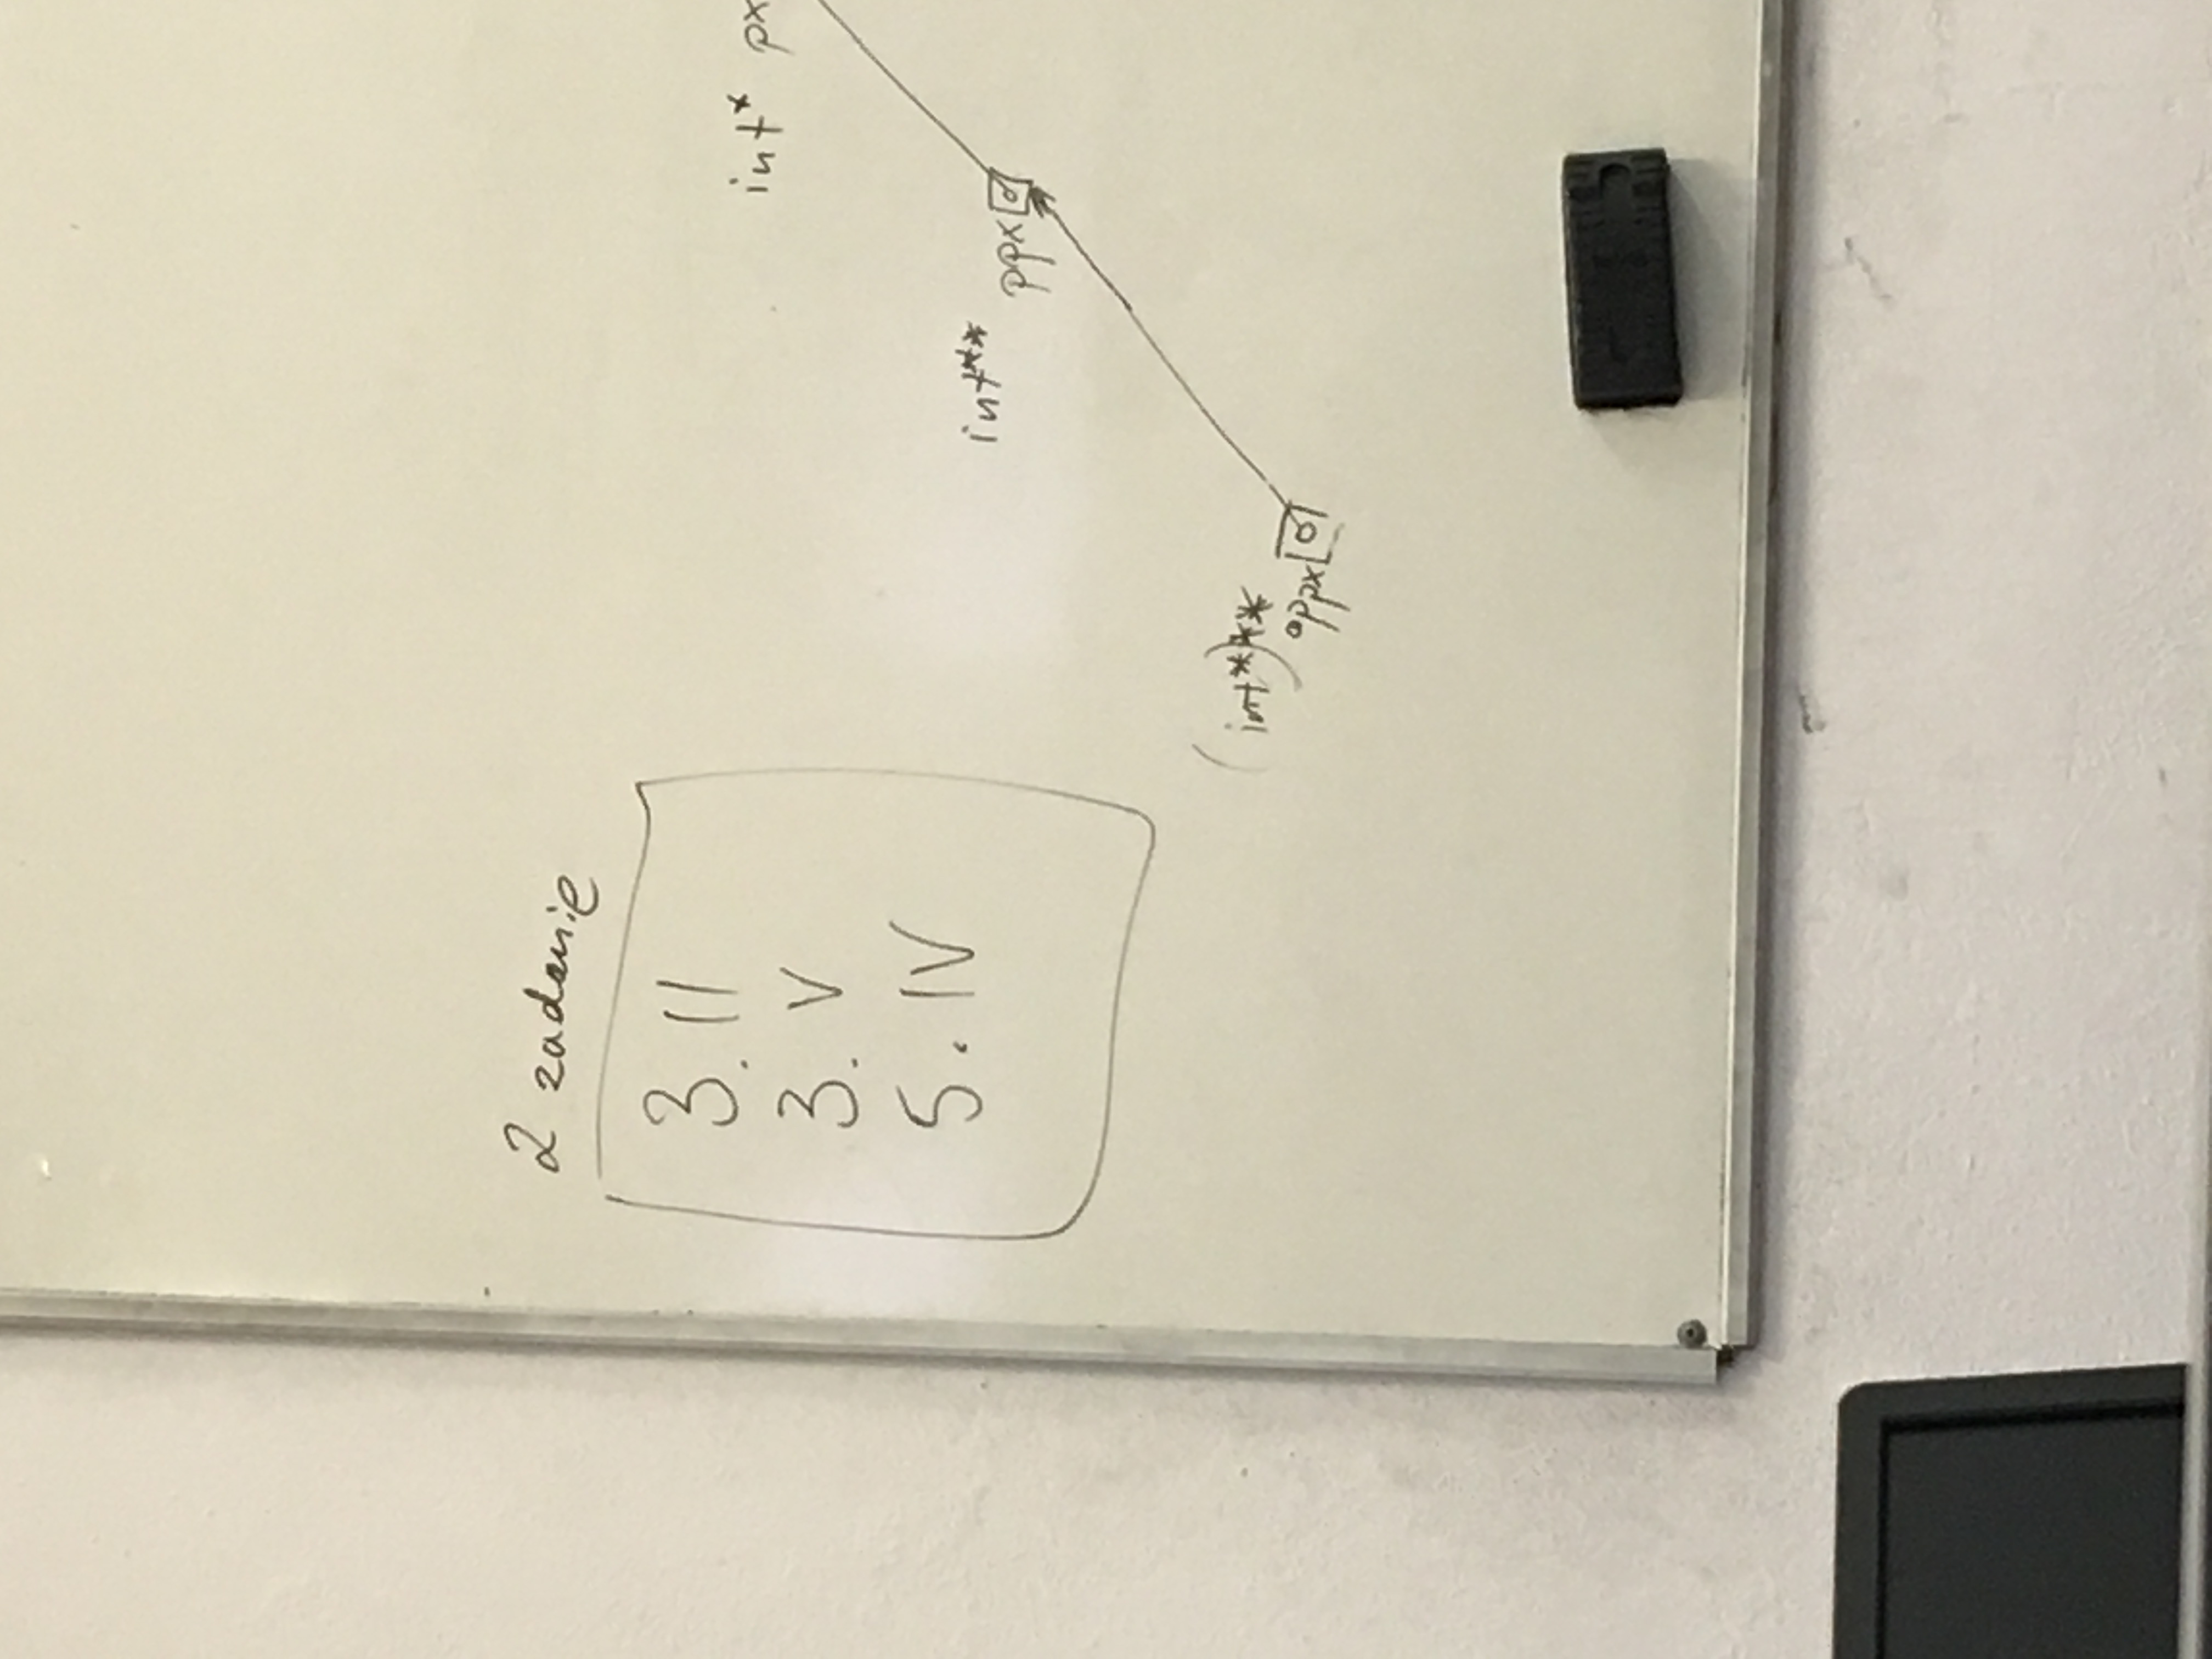 2 zadanie
3. II
3. V
5. IV
int* px
int** ppx
(int*)**
appx